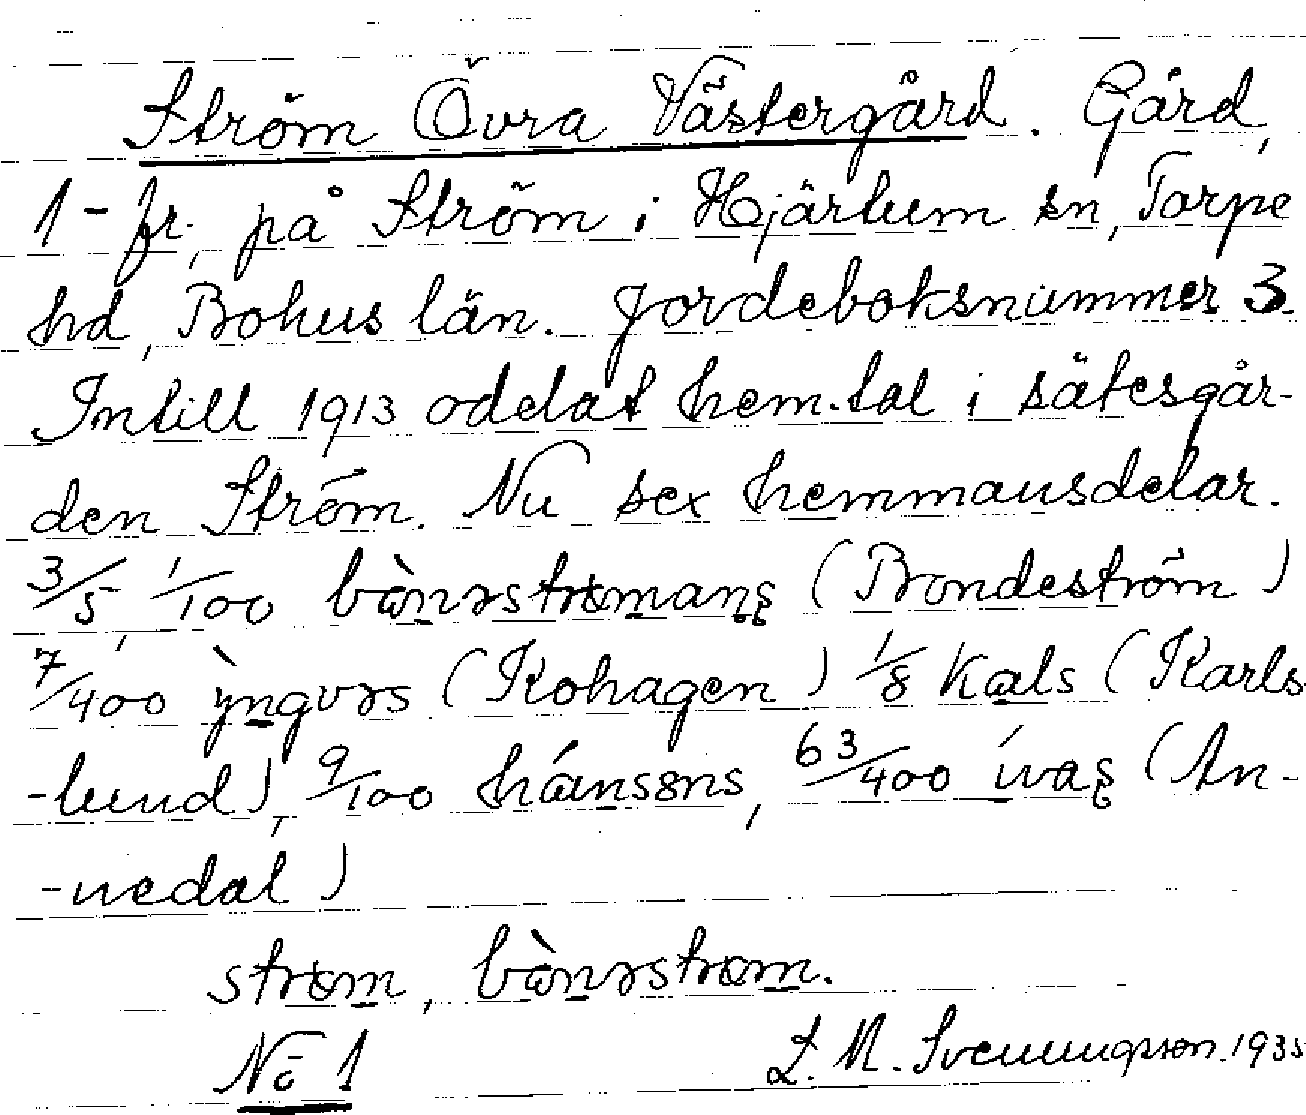 Ström Övra Västergård. Gård,
1-fr. på Ström i Hjärtum sn, Torpe
hd, Bohus län. Jordeboksnummer 3.
Intill 1913 odelat hem.tal i sätesgår-
den Ström. Nu sex hemmansdelar.
3/5, 1/100 bònəstrømans (Bondeström)
7/400 ỳngvəs (Kohagen) 1/8 Kals (Karls
-lund), 9/100 hánsəns, 63/400 ívas (An-
-nedal)
strøm, bònəstrøm.
No 1
L. M. Svenungsson 1935